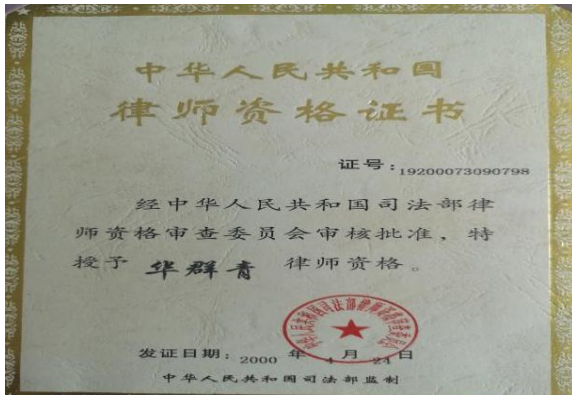 中华人民共和国
律师资格证书
证号：19200073090798
经中华人民共和国司法部律
师资格审查委员会审核批准，特
授予 华群青 律师资格。
发证日期：2000 年 4 月 24 日
中华人民共和国司法部监制